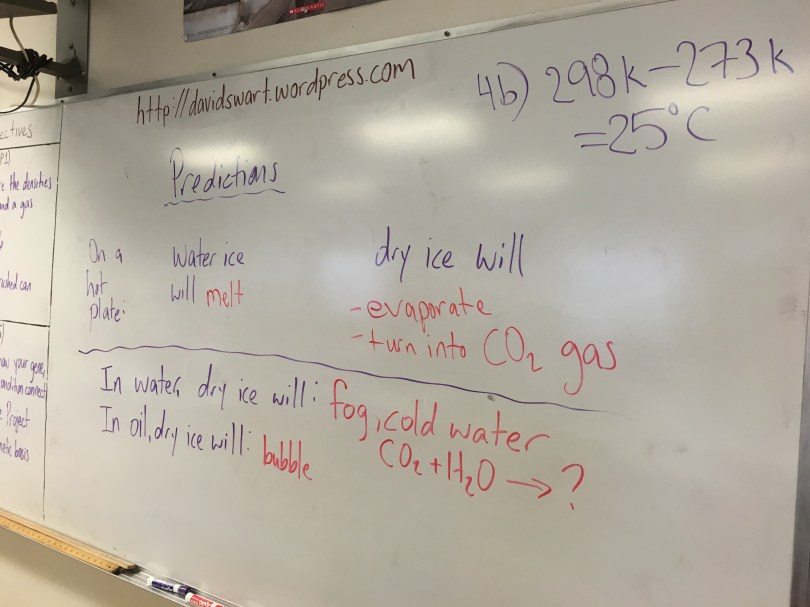 http://davidswart.wordpress.com
4b) 298k-273k
=25°C
Predictions
On a
hot
plate:
Water ice
will melt
dry ice will
-evaporate
-turn into CO₂ gas
In water, dry ice will: fog, cold water
CO₂+H₂O → ?
In oil, dry ice will: bubble
ectives
e the densities
nd a gas
can
your gene,
connect
Project
basis